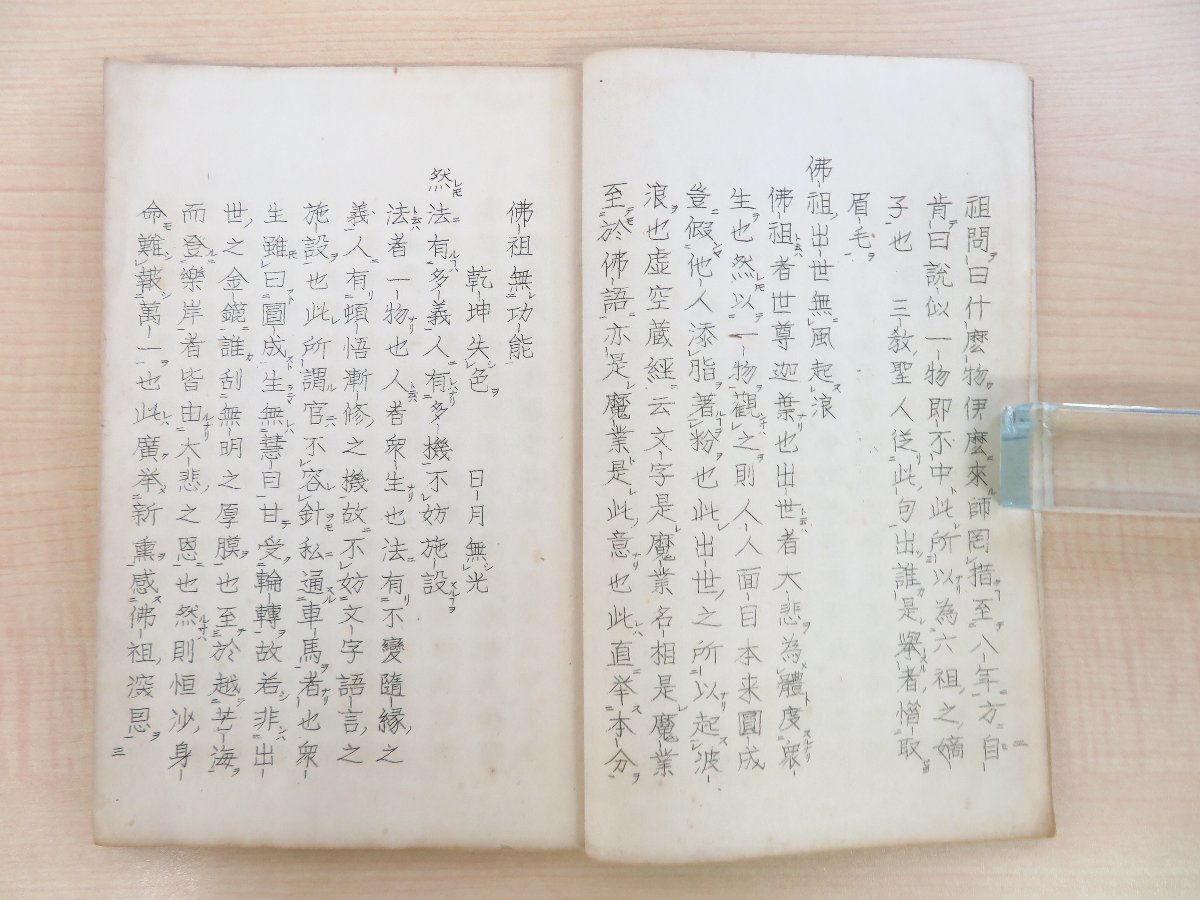 祖問曰什麽物伊麽來師罔措至八年方自
肯曰說似一物即不中此所以為六祖之嫡
子也　三教聖人従此句出誰是舉者惜取
眉毛
佛祖出世無風起浪
佛祖者世尊迦葉也出世者大悲為體度衆
生也然以一物觀之則人人面目本来圓成
豈假他人添脂著粉也此出世之所以起波
浪也虚空蔵經云文字是魔業名相是魔業
至於佛語亦是魔業是此意也此直举本分
佛祖無功能
乾坤失色　日月無光
然法有多義人有多機不妨施設
法者一物也人者衆生也法有不變隨緣之
義人有頓悟漸修之機故不妨文字語言之
施設也此所謂官不容針私通車馬者也衆
生雖曰圓成生無慧目甘受輪轉故若非出
世之金鎞誰刮無明之厚膜也至於越苦海
而登樂岸者皆由大悲之恩也然則恒沙身
命難報萬一也此廣举新熏感佛祖深恩
三